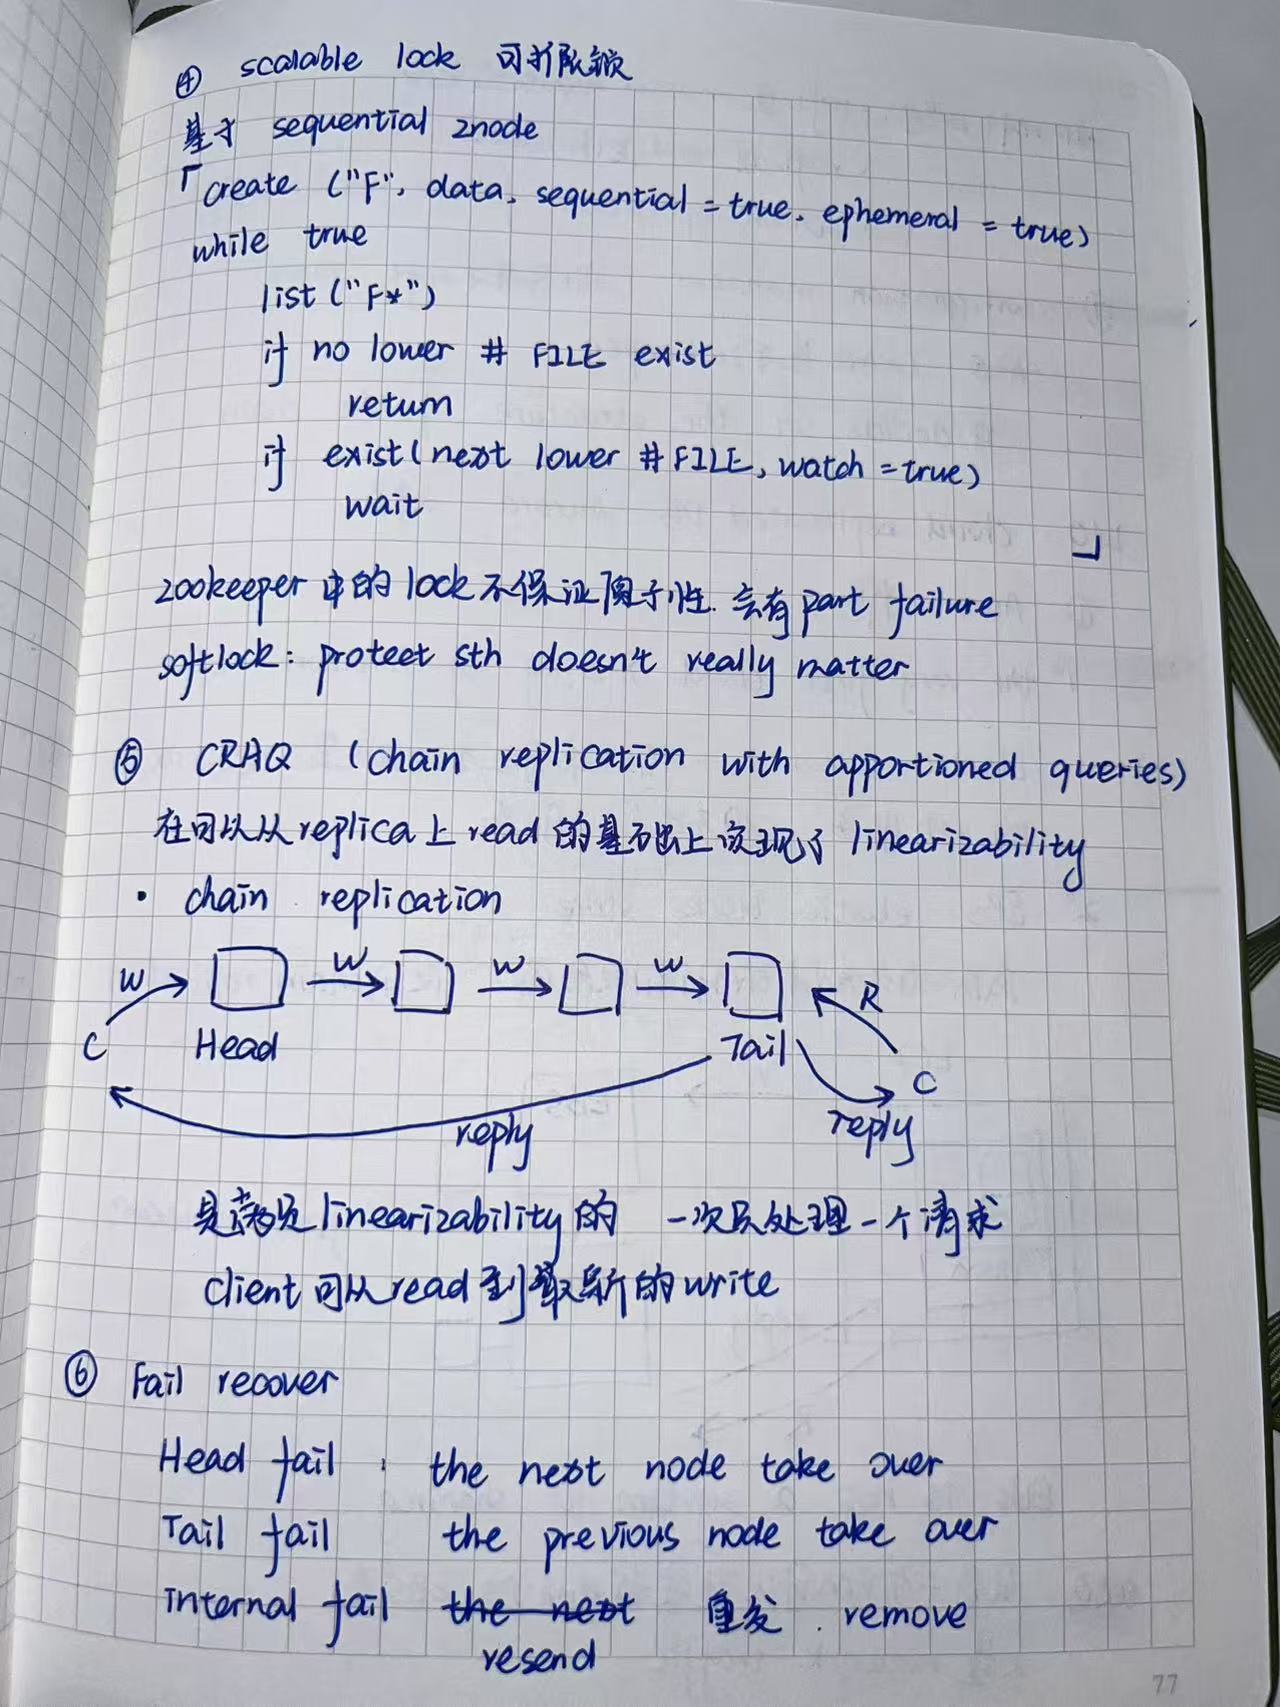 ④ scalable lock 可扩展锁
基于 sequential znode
「create ("F", data, sequential = true, ephemeral = true)
while true
list ("F*")
if no lower # FILE exist
return
if exist(next lower # FILE, watch = true)
wait
」
zookeeper 中的 lock 不保证原子性. 会有 part failure
softlock: protect sth doesn't really matter
⑤ CRAQ (chain replication with apportioned queries)
在可以从 replica 上 read 的基础上实现了 linearizability
· chain replication
W W W W R
C Head Tail C
reply reply
是满足 linearizability 的 一次只处理一个请求
client 可以 read 到最新的 write
⑥ Fail recover
Head fail : the next node take over
Tail fail the previous node take over
Internal fail the next 重发 . remove
resend
77